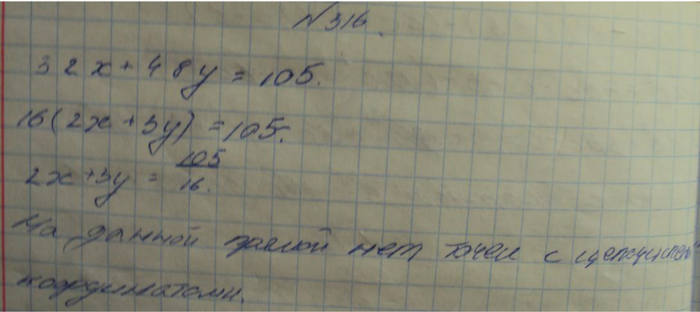 №316.
32x+48y=105.
16(2x+3y)=105.
2x+3y=105/16.
На данной прямой нет точек с целочислен
координатами.